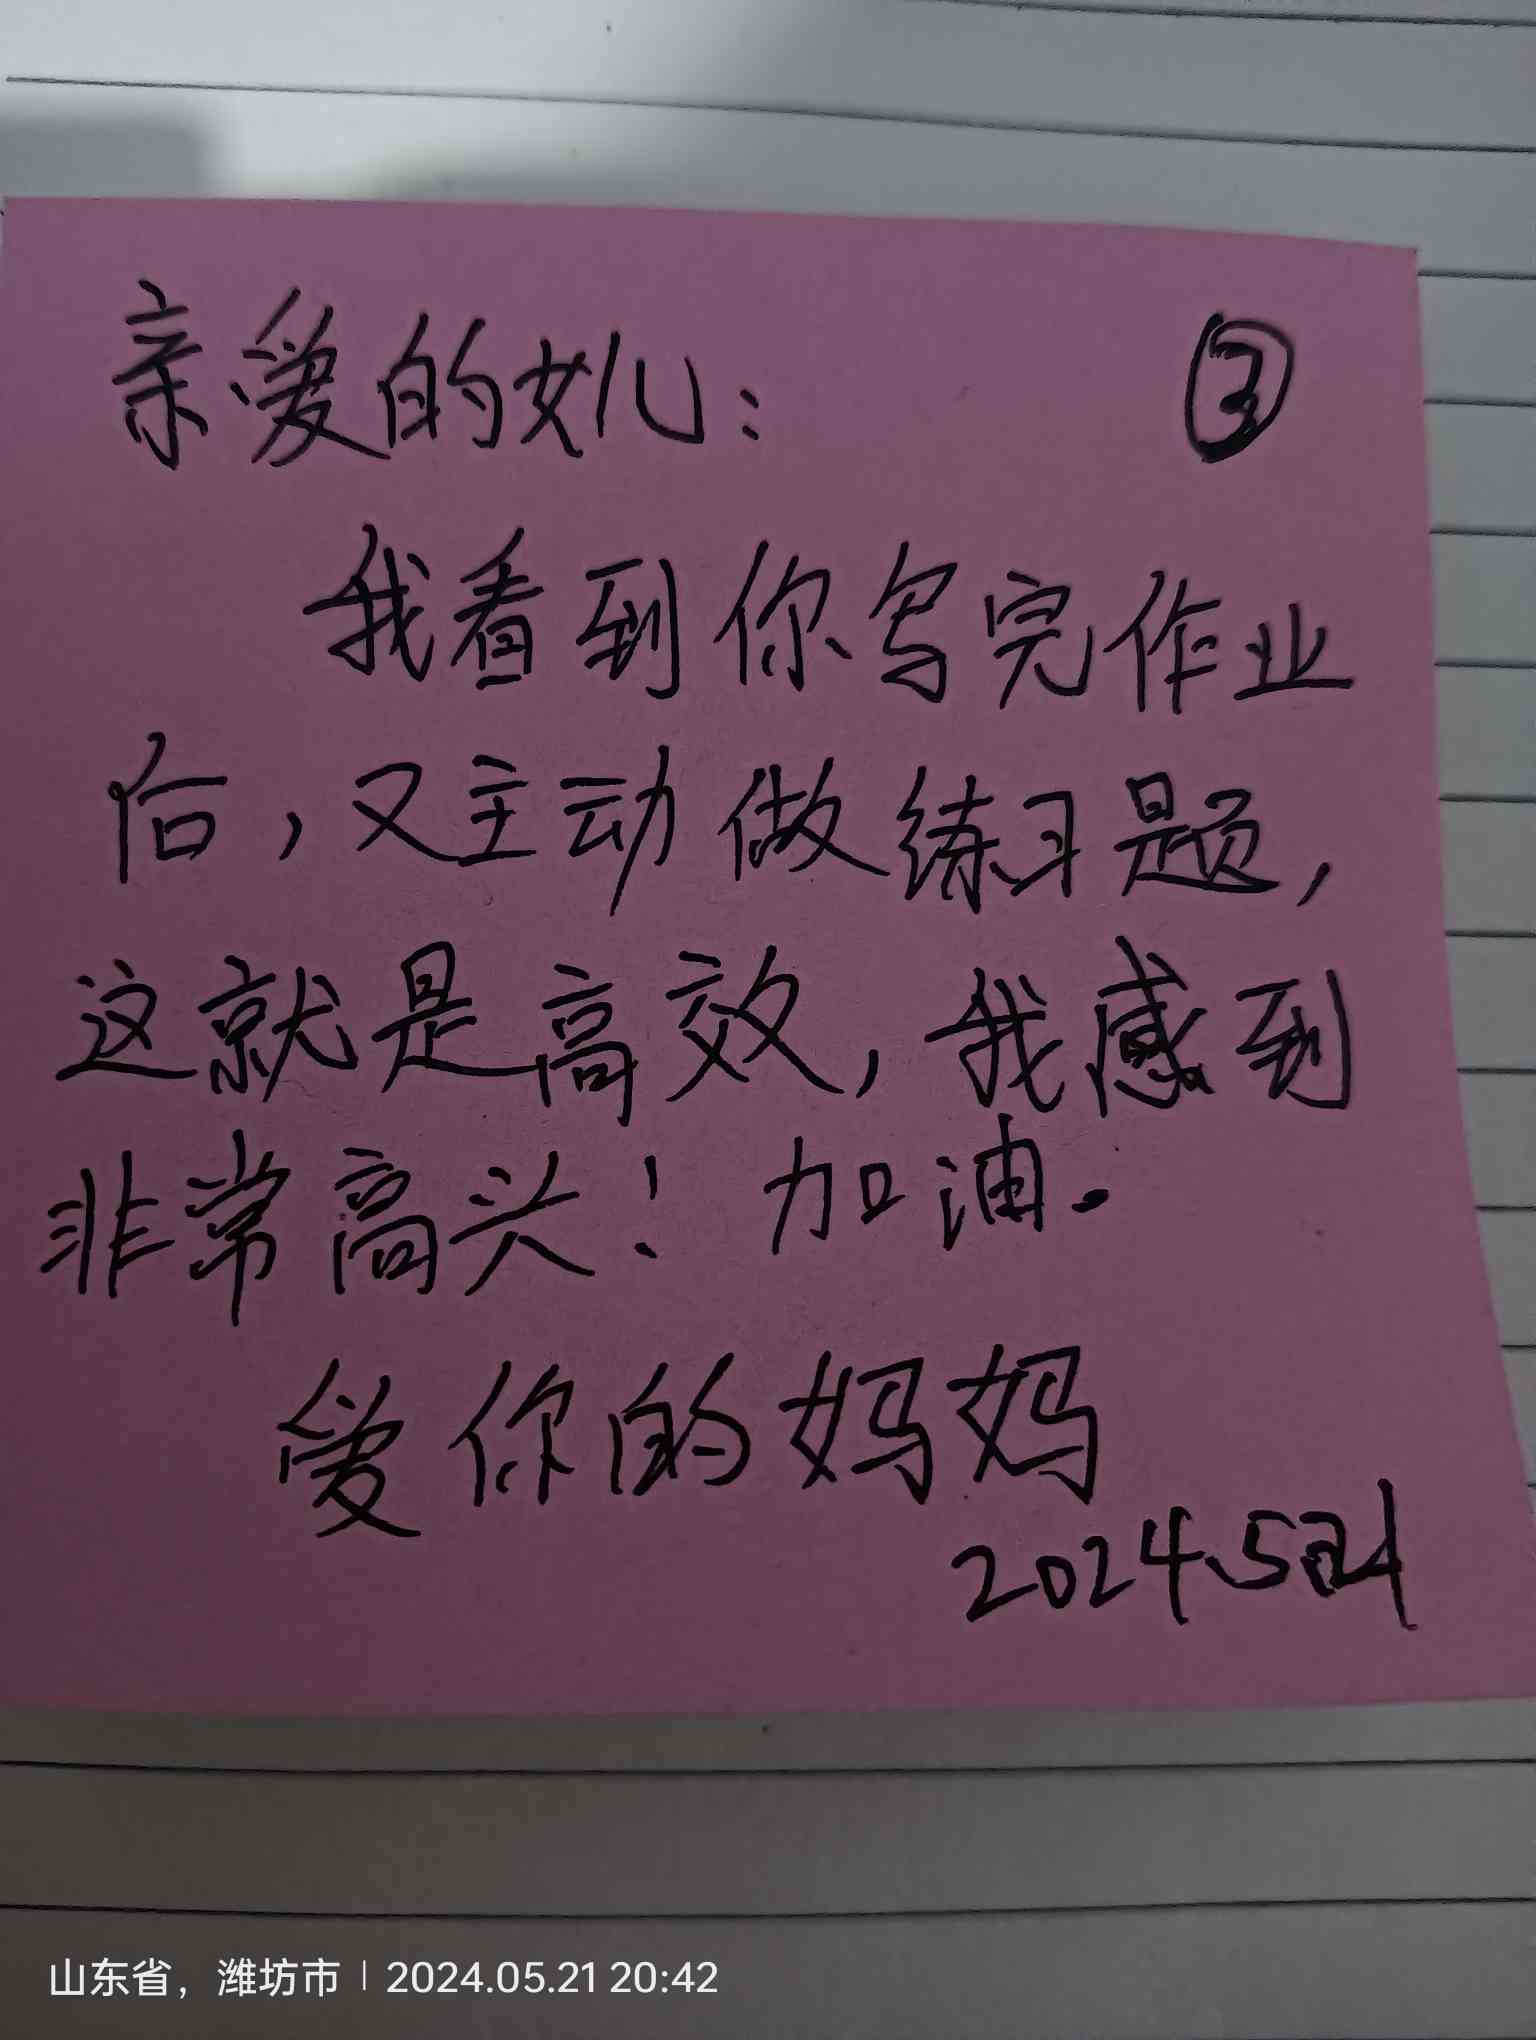 亲爱的女儿： ③
我看到你写完作业
后，又主动做练习题，
这就是高效，我感到
非常高兴！加油。
爱你的妈妈
2024.5.21
山东省，潍坊市 | 2024.05.21 20:42